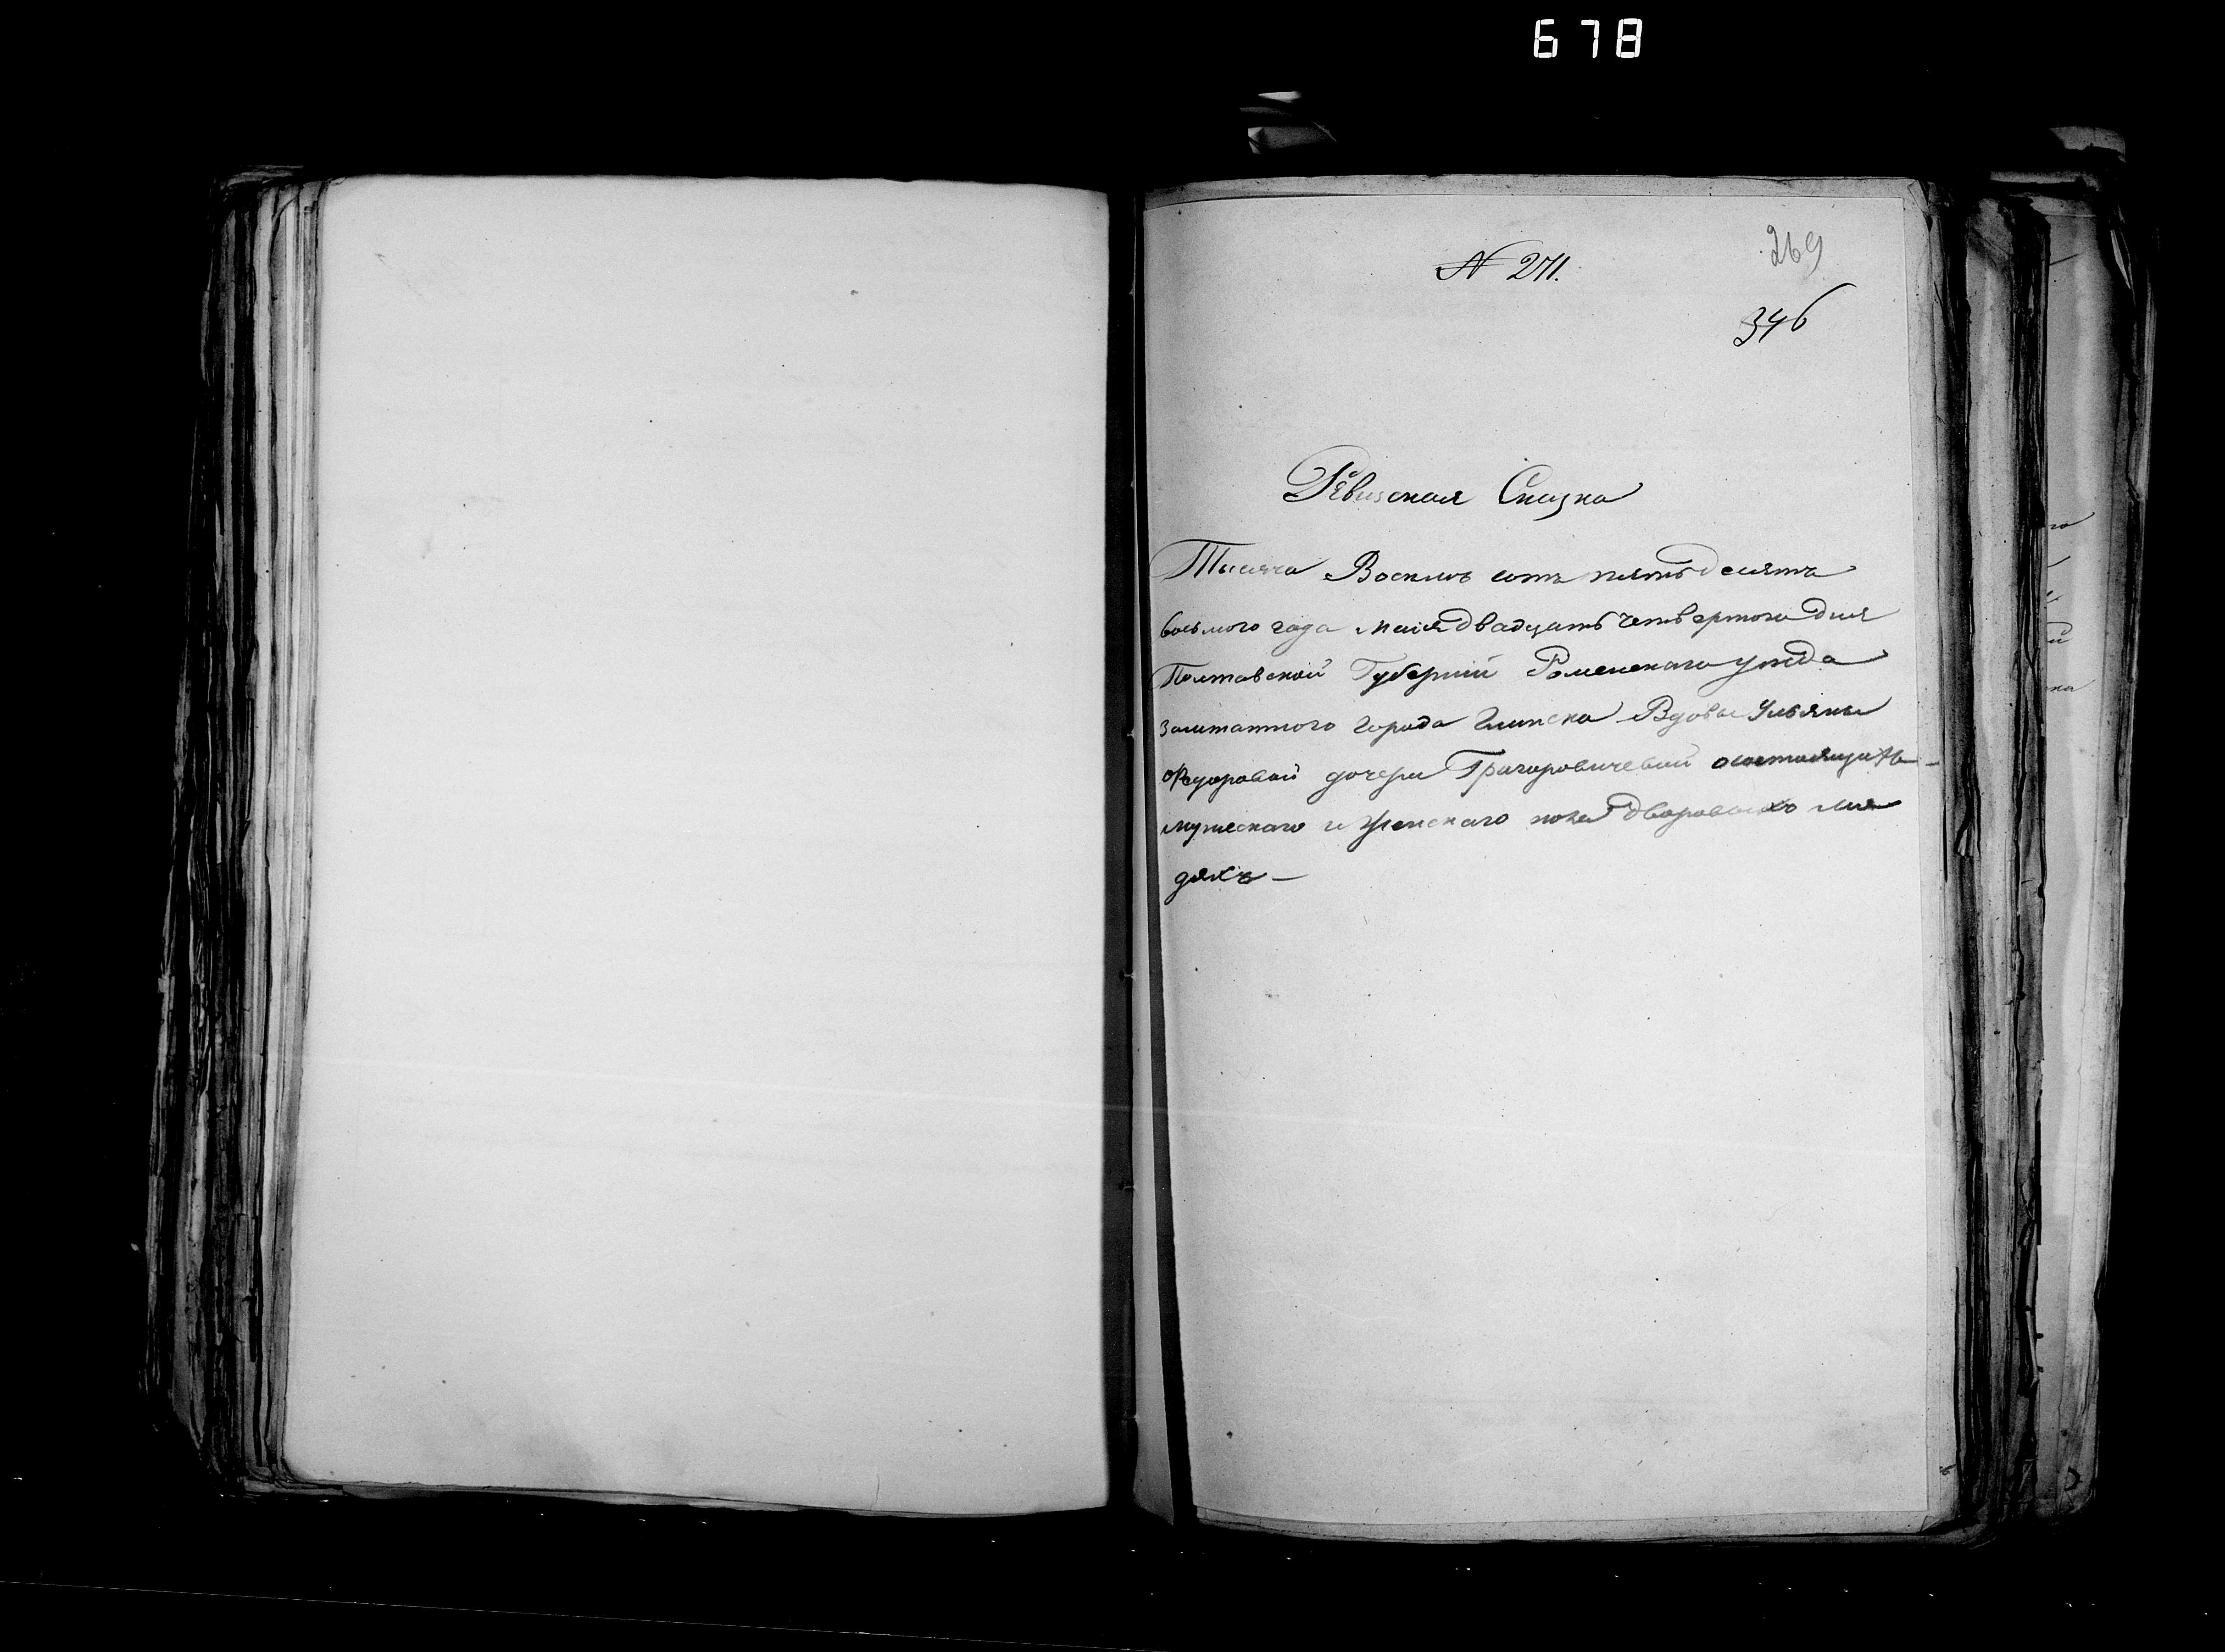 678
269
N 271.
346
Ревизская Сказка
Тысяча Восемь сотъ пятьдесятъ
восьмого года маія двадцать четвертого дня
Полтавской Губерніи Роменскаго уезда
заштатного города Глинска Вдовы Ульяны
Федоровой дочери Григоровичевой осостоящихъ
мужескаго и женскаго пола дворовыхъ лю
дяхъ —